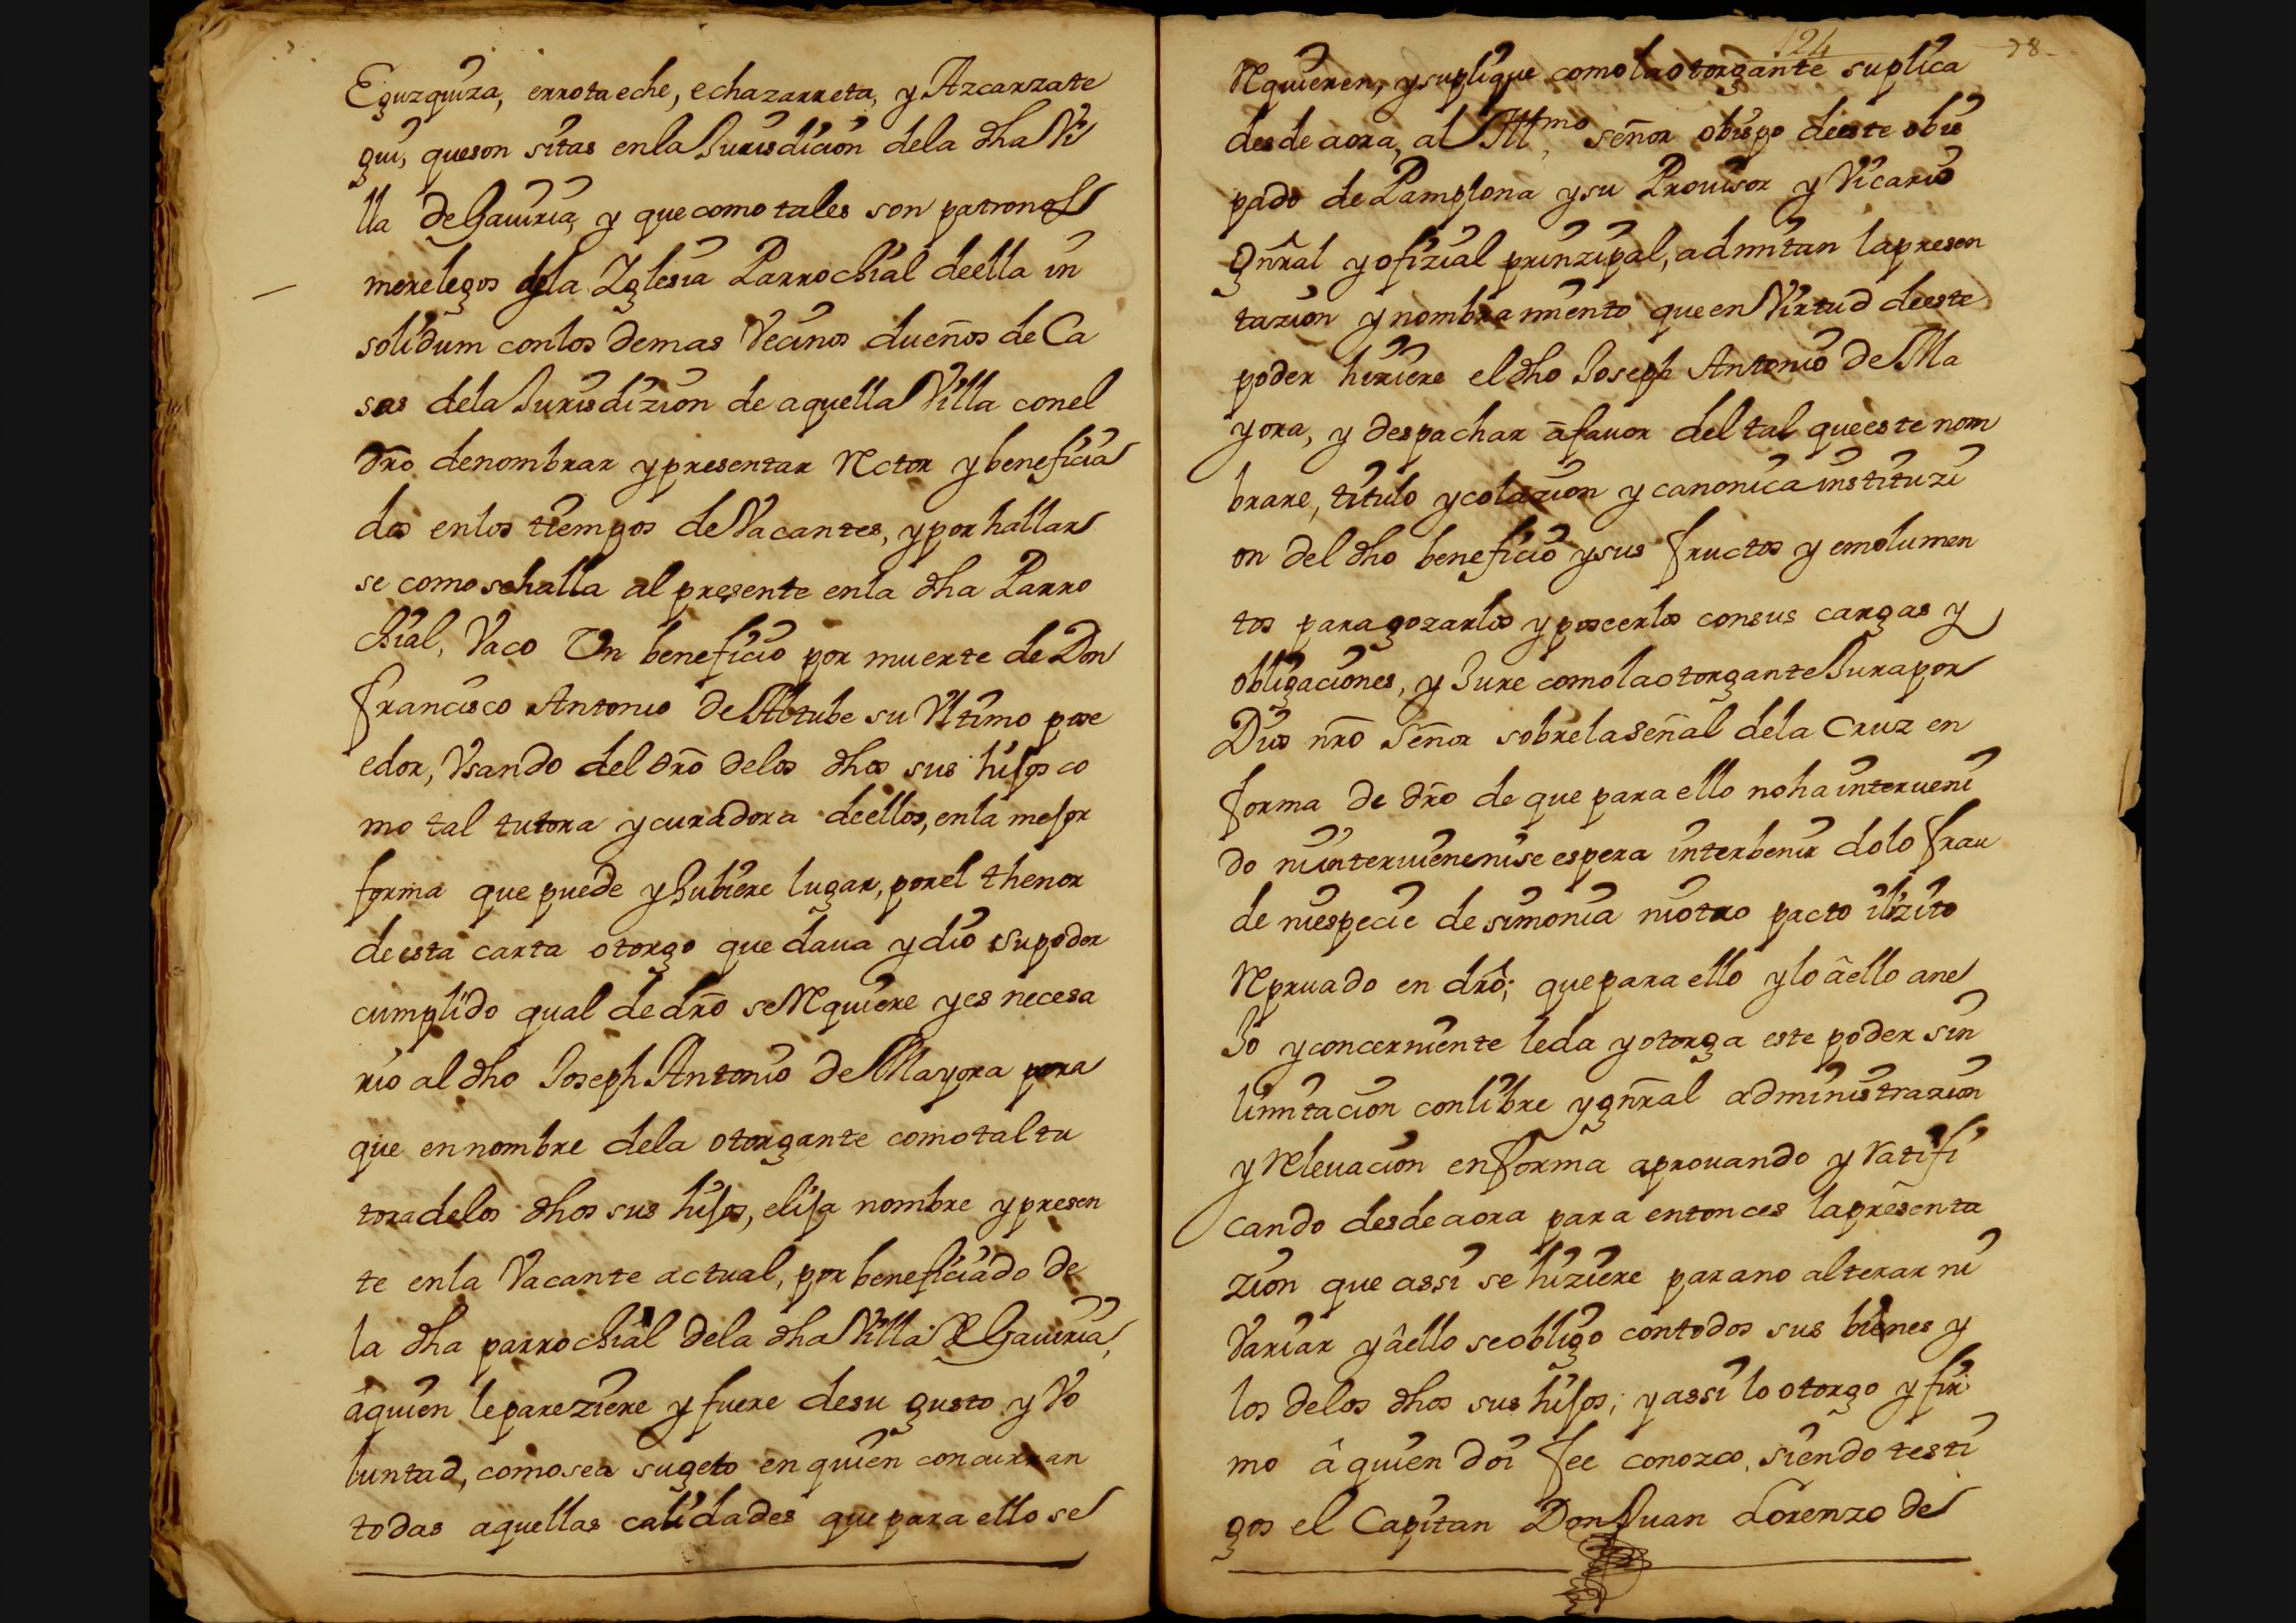 Eguzquiza, errotaeche, echazarreta, y Azcarzate
gui, queson sitas enla Jurisdicion dela dha Vi
lla de Gaviria, y que como tales son patronos
merelegos dela Iglesia Parrochial deella in
solidum conlos demas Vecinos dueños de Ca
sas dela Jurisdizion de aquella Villa conel
dr̃o denombrar y presentar Rector y beneficia
dos enlos tiempos de Vacantes, y por hallar
se como sehalla al presente enla dha Parro
chial, Vaco Un beneficio por muerte de Don
francisco Antonio de Altube su Ultimo pose
edor, Vsando del dr̃o delos dhos sus hijos co
mo tal tutora y curadora deellos, enla mejor
forma que puede y Hubiere lugar, porel thenor
de esta carta otorgo que daua y dio su poder
cumplido qual de dr̃o se Requiere y es necesa
rio al dho Joseph Antonio de Mayora para
que en nombre dela otorgante como tal tu
tora delos dhos sus hijos, elija nombre y presen
te enla Vacante actual, por beneficiado de
la dha parrochial dela dha Villa de Gaviria,
âquien le pareziere y fuere desu gusto y Vo
luntad, como sea sugeto en quien concurran
todas aquellas calidades que para ello se
124
78
Requieren, y suplique como la otorgante suplica
desde aora, al Ill.mo señor obispo deeste obis
pado de Pamplona y su Prouisor y Vicario
Gñral y ofizial prinzipal, admitan la presen
tazion y nombramiento que en Virtud deeste
poder hiziere el dho Joseph Antonio de Ma
yora, y despachar â fauor del tal que este nom
brare, titulo y colazion y canonica instituzi
on del dho beneficio y sus fructos y emolumen
tos para gozarlos y poseerlos consus cargas y
obligaciones, y Jure como la otorgante Jura por
Dios nr̃o Señor sobre la señal dela Cruz en
forma de dr̃o de que para ello no ha interueni
do ni interuiene ni se espera interbenir dolo frau
de ni especie de simonia ni otro pacto ilizito
Repruado en dr̃o; que para ello y lo âello ane
Jo y concerniente leda y otorga este poder sin
limitacion con libre y gñral administrazion
y Releuacion en forma aprouando y Ratifi
cando desde aora para entonces la presenta
zion que assi se hiziere para no alterar ni
Variar y âello se obligo con todos sus bienes y
los delos dhos sus hijos; y assi lo otorgo y fir
mo â quien doi fee conozco, siendo testi
gos el Capitan Don Juan Lorenzo de